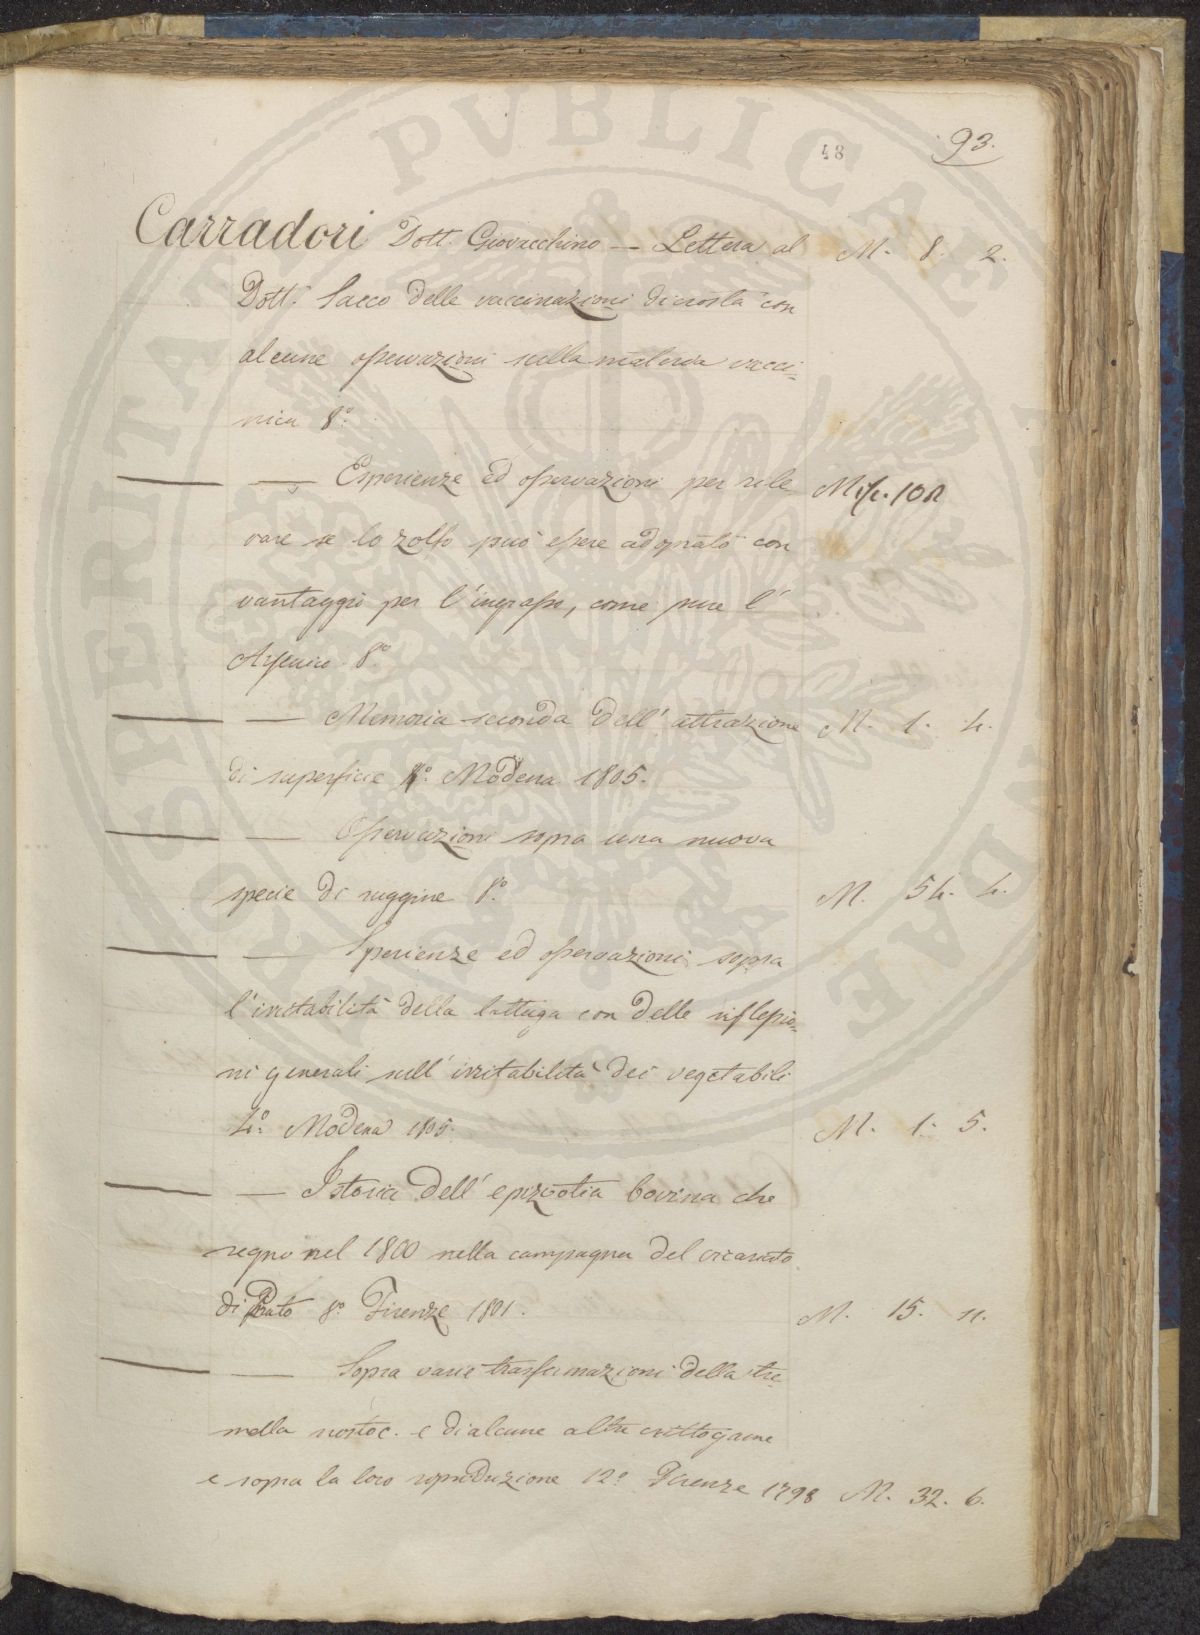 48
93.
Carradori Dott. Giovacchino — Lettera al M. 8. 2.
Dott. Sacco delle vaccinazioni di crosta con
alcune osservazioni sulla materia vacci-
nica 8.°
— — Esperienze ed osservazioni per rile Miſc. 108
vare se lo zolfo può essere adoprato con
vantaggio per l'ingrasso, come pure l'
Arsenico. 8.°
— — Memoria seconda dell'attrazione M. 1. 4.
di superficie 4.° Modena 1805.
— — Osservazioni sopra una nuova
specie di ruggine 8.° M. 54. 4.
— — Sperienze ed osservazioni sopra
l'irritabilità della lattuga con delle riflessio-
ni generali sull'irritabilità dei vegetabili
4.° Modena 1805. M. 1. 5.
— — Istoria dell'epizootia bovina che
regno nel 1800 nella campagna del vicariato
di Prato 8.° Firenze 1801. M. 15. 11.
— — Sopra varie trasformazioni della tre-
mella nostoc. e di alcune altre crittogame
e sopra la loro riproduzione 12.° Firenze 1798 M. 32. 6.
PROSPERITATI PVBLICAE AVGENDAE